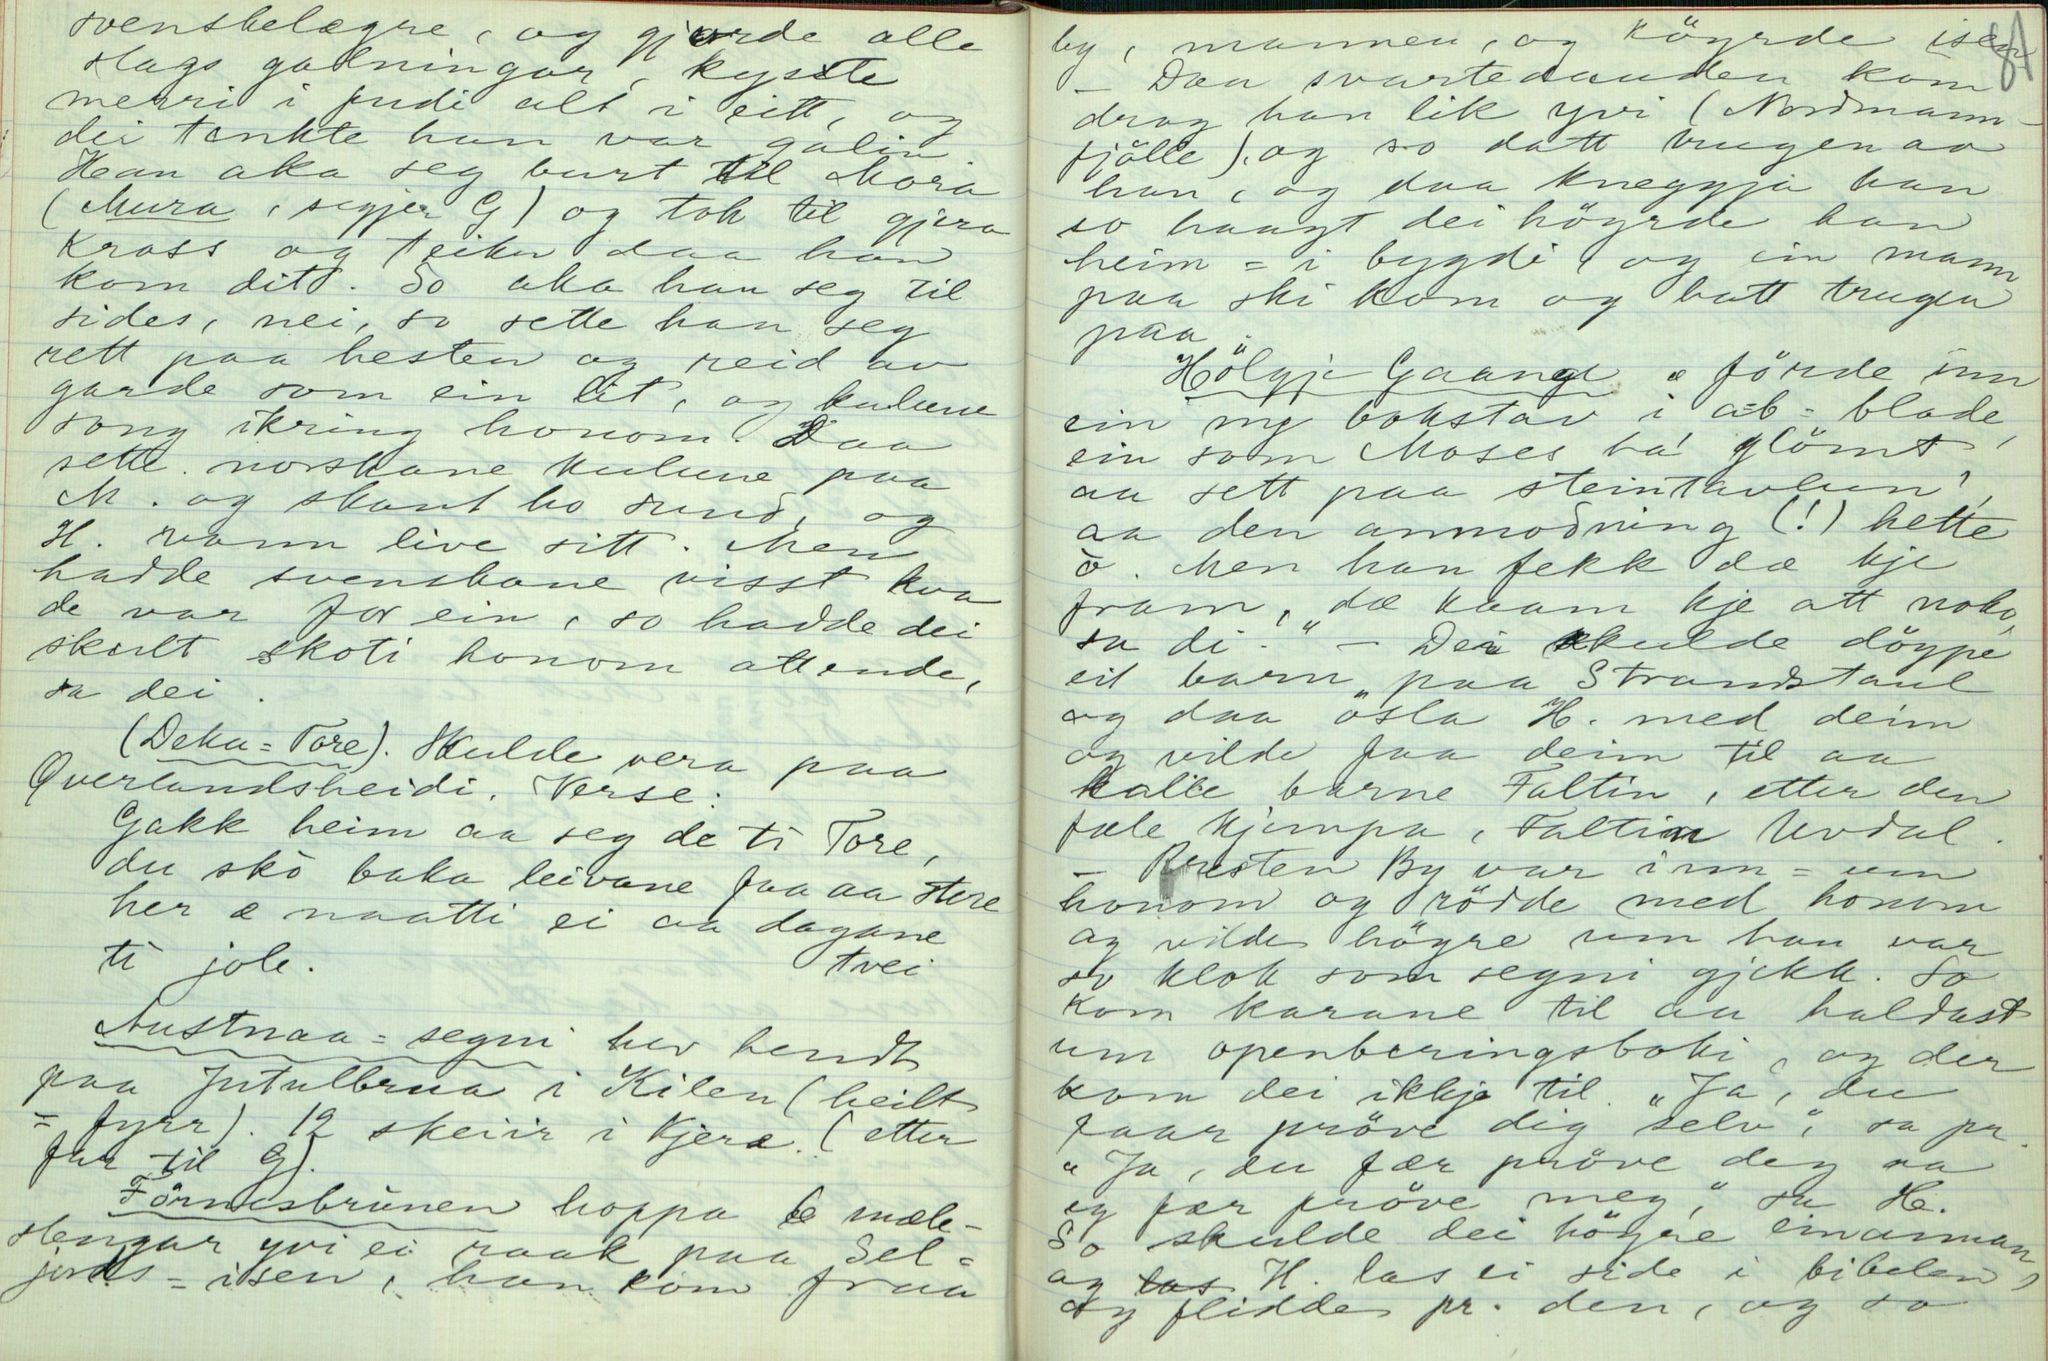 svenskelægre, og gjorde alle
slags galningar, kysste
merri i fudi alt i eitt, og
dei tenkte han var galin.
Han aka seg burt til Mora
(Mura, segjer G) og tok til gjera
kross og teikn daa han
kom dit. So aka han seg til
sides, nei, so sette han seg
rett paa hesten og reid av
garde som ein lit, og kulune
song ikring honom. Daa
sette norskane kulune paa
M. og skaut ho sund, og
H. vann live sitt. Men
hadde svenskane visst kva
de var for ein, so hadde dei
skult skoti honom attende,
sa dei.
(Deka-Tore). Skulde vera paa
Qverlandsheidi. Verse:
Gakk heim aa seg de ti Tore,
du skò baka leivane faa aa store
her æ naatti ei aa dagane
ti jole. tvei
Austnaa-segni hev hendt
paa Jutulbrua i Kilen (heilt
= fyrr). 12 skeiir i kjera. (etter
far til G).
Förnesbrunen hoppa 6 mæle-
stengar yvi ei raak paa Sel-
jords-isen, han kom fraa
84
by, mannen, og köyrde isen
- Daa svartedauden kom
drog han lik yvi (Nordmann-
fjölle), og so datt trugen av
han, og daa kneggja han
so haagt dei höyrde han
heim-i bygdi, og ein mann
paa ski kom og batt trugen
paa.
Hölgje Gaang "förde inn
ein ny bokstav i a-b-blade,
ein som Moses ha' glömt
aa sett paa steintavlun',
aa den anmodning (!) hette
ò. Men han fekk dæ kje
fram, 'dæ kaam kje att noko,
sa di." - Dei skulde döype
eit barn paa Strandstaul
og daa ösla H. med deim
og vilde faa deim til aa
kalle barne Faltin, etter den
fæle kjempa, Faltin Uvdal.
- Presten By var inn-um
honom og rödde med honom
og vilde högre um han var
so klok som segni gjekk. So
kom karane til aa haldast
um openberingsboki, og der
kom dei ikkje til. "Ja, du
faar pröve dig selv", sa pr.
"Ja, du fær pröve deg aa
eg fær pröve meg," sa H.
So skulde dei högre einannan,
og H. las ei side i bibelen,
og flidde pr. den, og so